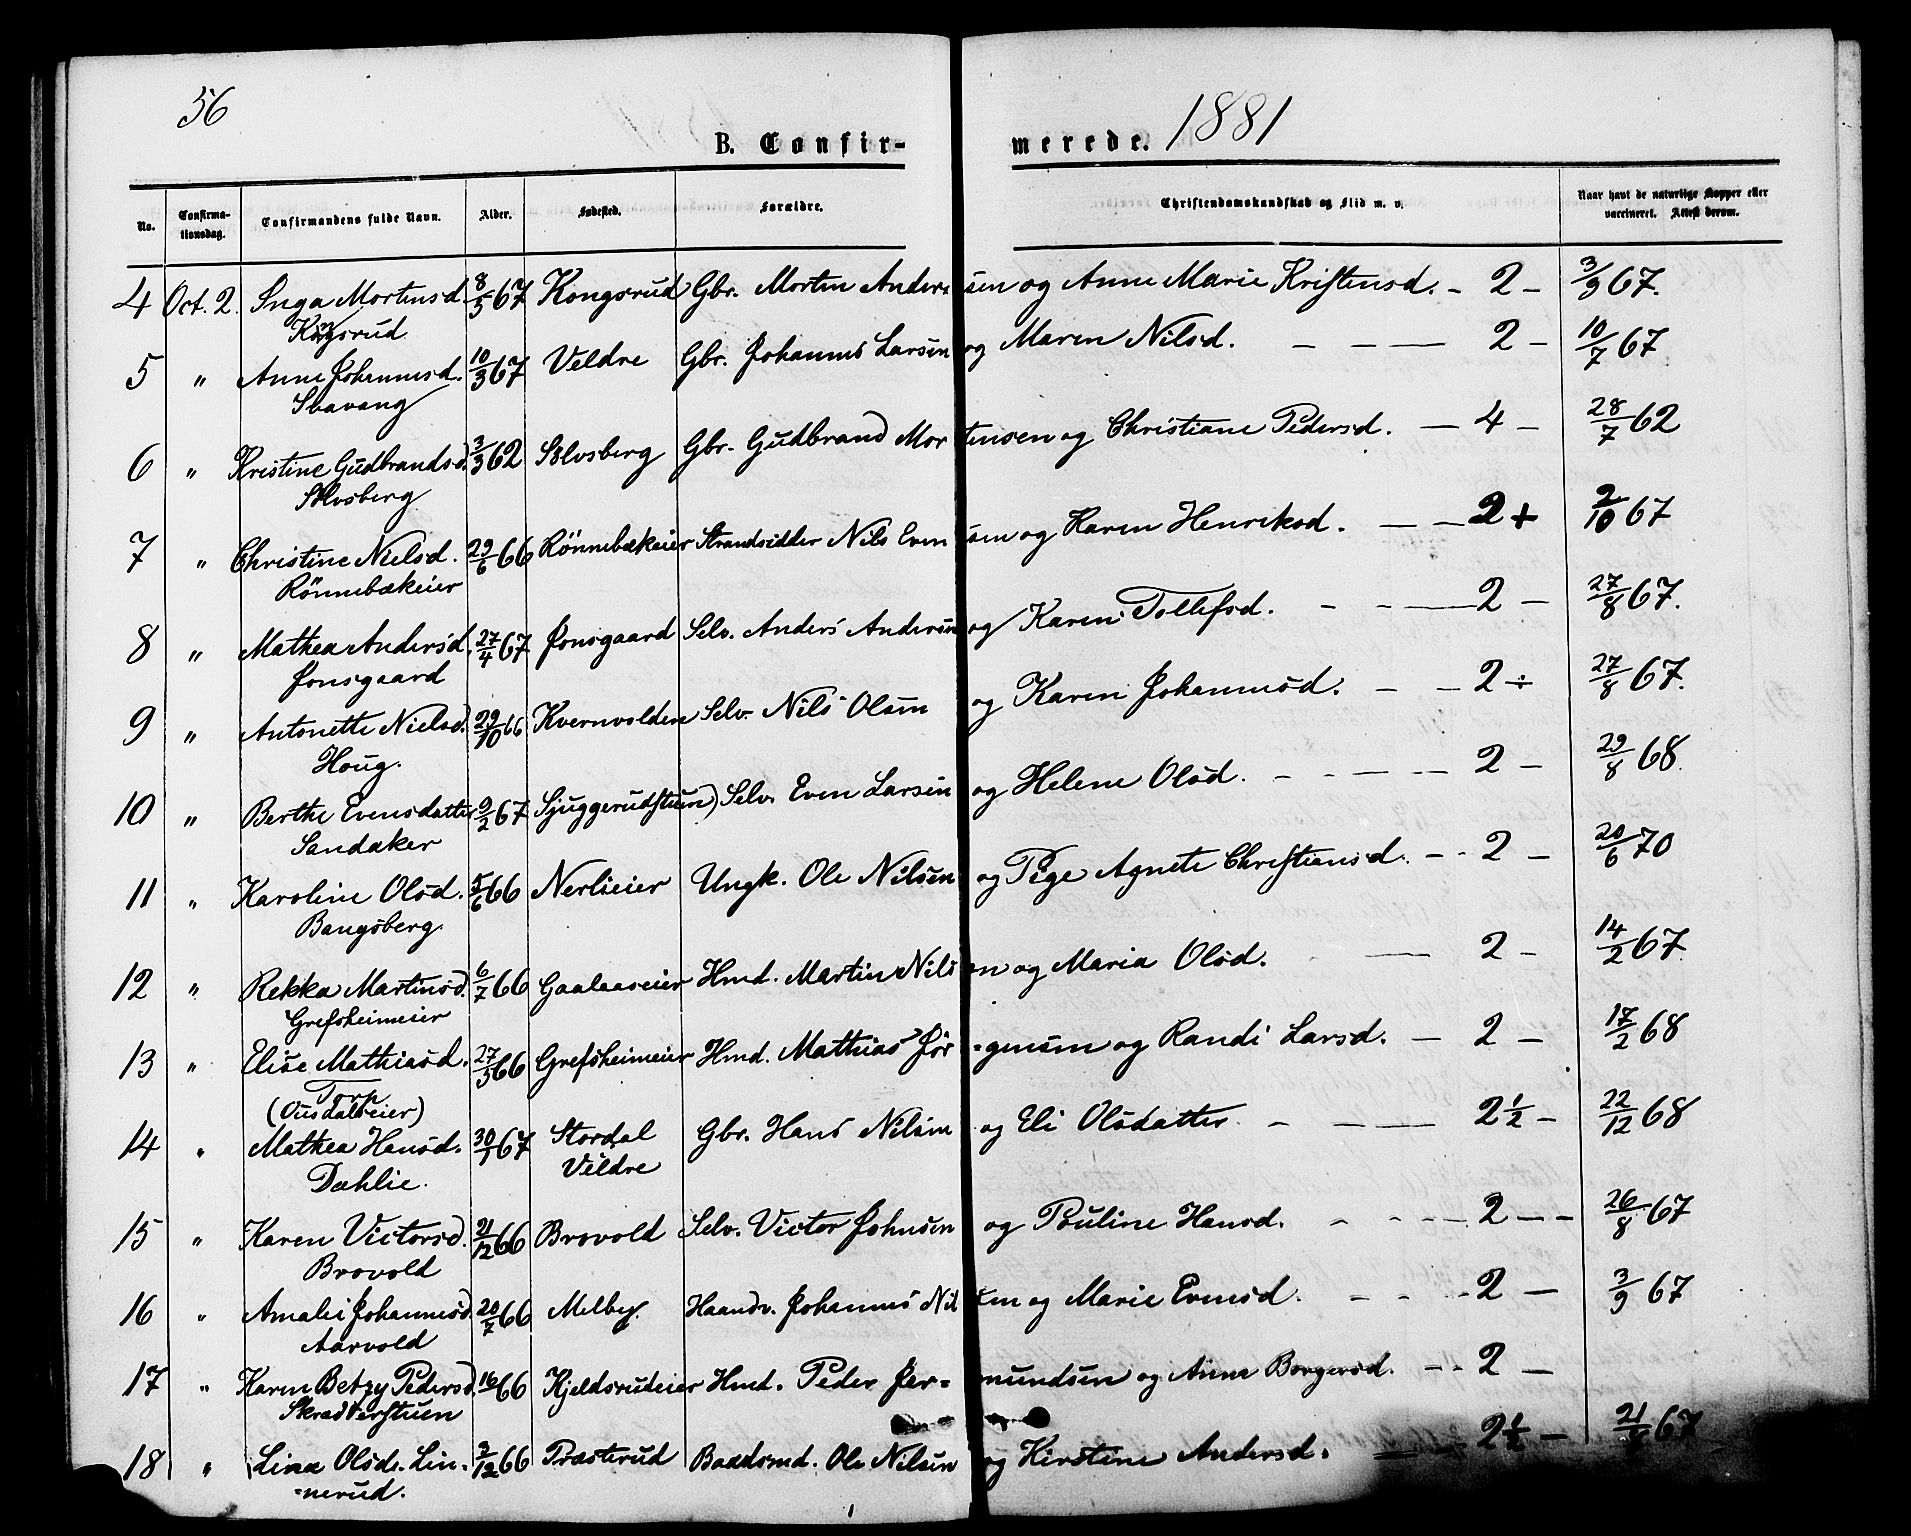 56
B. Confir-merede. 1881
No. Confirma-tionsdag. Confirmandens fulde Navn. Alder. Fødested. Forældre. Christendomskundskab og Flid m. v. Naar havt de naturlige Kopper eller vaccineret. Attest derom.
4 Oct. 2. Inga Mortensd. 8/5 67 Kongsrud Gbr. Morten Andersen og Anne Marie Kristensd. - 2 - 3/9 67.
Kongsrud
5 " Anne Johannesd. 10/3 67 Veldre Gbr. Johannes Larsen og Maren Nilsd. - - - 2 - 10/7 67
6 " Kristine Gudbrandsd. 3/3 62 Solvsberg Gbr. Gudbrand Mortensen og Christiane Pedersd. - 4 - 28/7 62
Solvsberg
7 " Christine Nielsd. 29/6 66 Rönnebækeier Strandsidder Nils Evensen og Karen Henriksd. - - 2 + 2/10 67
Rönnebækeier
8 " Mathea Andersd. 27/4 67 Jonsgaard Selv. Anders Andersen og Karen Tollefsd. - - - 2 - 27/8 67.
Jonsgaard
9 " Antonette Nielsd. 29/10 66 Kvernvolden Selv. Nils Olsen og Karen Johannesd. - - 2 ÷ 27/8 67.
Houg.
10 " Berthe Evensdatter 9/2 67 Sjuggerudstuen Selv. Even Larsen og Helene Olsd. - - - - 2 - 29/8 68.
Sandaker
11 " Karoline Olsd. 5/6 66 Nerlieier Ungk. Ole Nilsen og Pige Agnete Christiansd. - - 2 - 20/6 70
Bangsberg.
12 " Rekka Martinsd. 6/7 66 Gaalaaseier Hmd. Martin Nilsen og Maria Olsd. - - 2 - 14/2 67
Grefsheimeier
13 " Elise Mathiasd. 27/5 66 Grefsheimeier Hmd. Mathias Jörgensen og Randi Larsd. - 2 - 17/2 68
Torp
14 " Mathea Hansd. 30/1 67 Stordal Gbr. Hans Nilsen og Eli Olsdatter - - - 2 1/2 - 22/12 68
Dæhlie. Veldre
15 " Karen Victorsd. 21/12 66 Brovold Selv. Victor Johnsen og Pouline Hansd. - - - - 2 - - 26/8 67
Brovold
16 " Amalie Johannesd. 20/7 66 Melby. Haandv. Johannes Nilsen og Marie Evensd. - - - 2 - 3/9 67
Aarvold
17 " Karen Betzy Pedersd. 66 Kjeldsrudeier Hmd. Peder Jer=mundsen og Anne Borgersd. - - 2 -
Skradderstuen
18 " Lina Olsd. Lin- 3/12 66 Præsterud Baadsmd. Ole Nilsen og Kirstine Andersd. - - 2 1/2 - 67
=nerud.